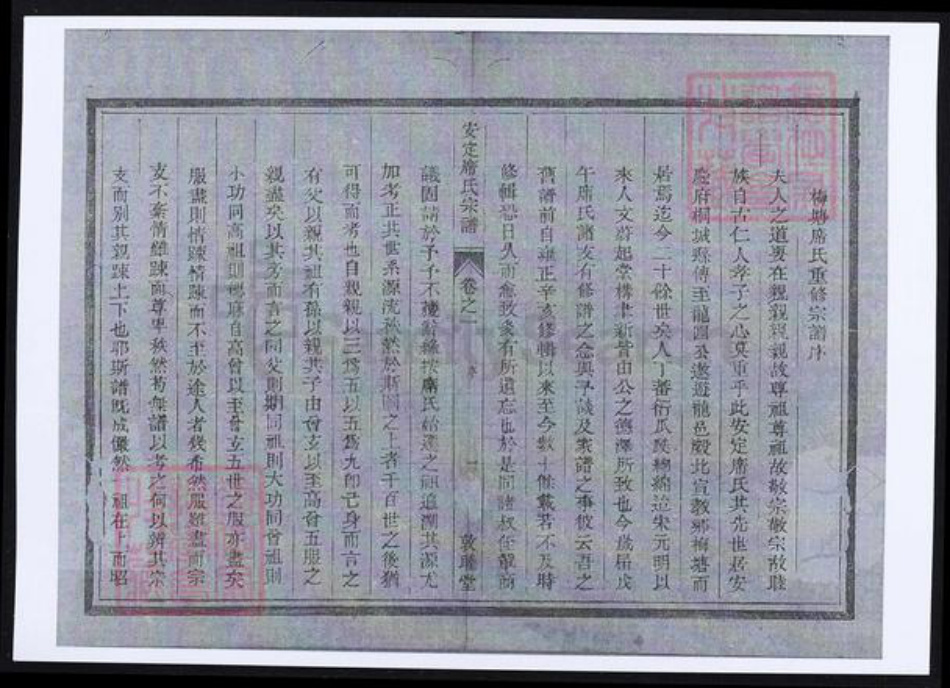 梅塘席氏重修宗譜序
夫人之道要在親親親親故尊祖尊祖故敬宗敬宗故睦
族自古仁人孝子之心莫重乎此安定席氏其先世居安
慶府桐城縣傳至龍圖公遨遊龍邑殿北宣教鄉梅塘而
居焉迄今二十餘世矣人丁蕃衍瓜瓞綿綿迨宋元明以
來人文蔚起堂構聿新皆由公之德澤所致也今歲屆戊
午席氏諸友有修譜之念與予議及家譜之事彼云吾之
舊譜前自雍正辛亥修輯以來至今數十餘載若不及時
修輯恐日久而愈致多有所遺忘也於是同諸叔侄輩商
安定席氏宗譜 卷之一 序 一 敦睦堂
議固請於予予不獲辭緣按席氏始遷之祖追溯其源尤
加考正其世系源流秩然於斯圖之上者千百世之後猶
可得而考也自親親以三為五以五為九即己身而言之
有父以親其祖有孫以親其子由會玄以至高會五服之
親盡矣以其旁而言之同父則期同祖則大功同曾祖則
小功同高祖則緦麻自高曾以至曾玄五世之服亦盡矣
服盡則情踈情踈而不至於途人者幾希然服雖盡而宗
支不紊情雖踈而尊卑秩然苟無譜以考之何以辨其宗
支而別其親踈上下也耶斯譜既成儼然 祖在上而昭